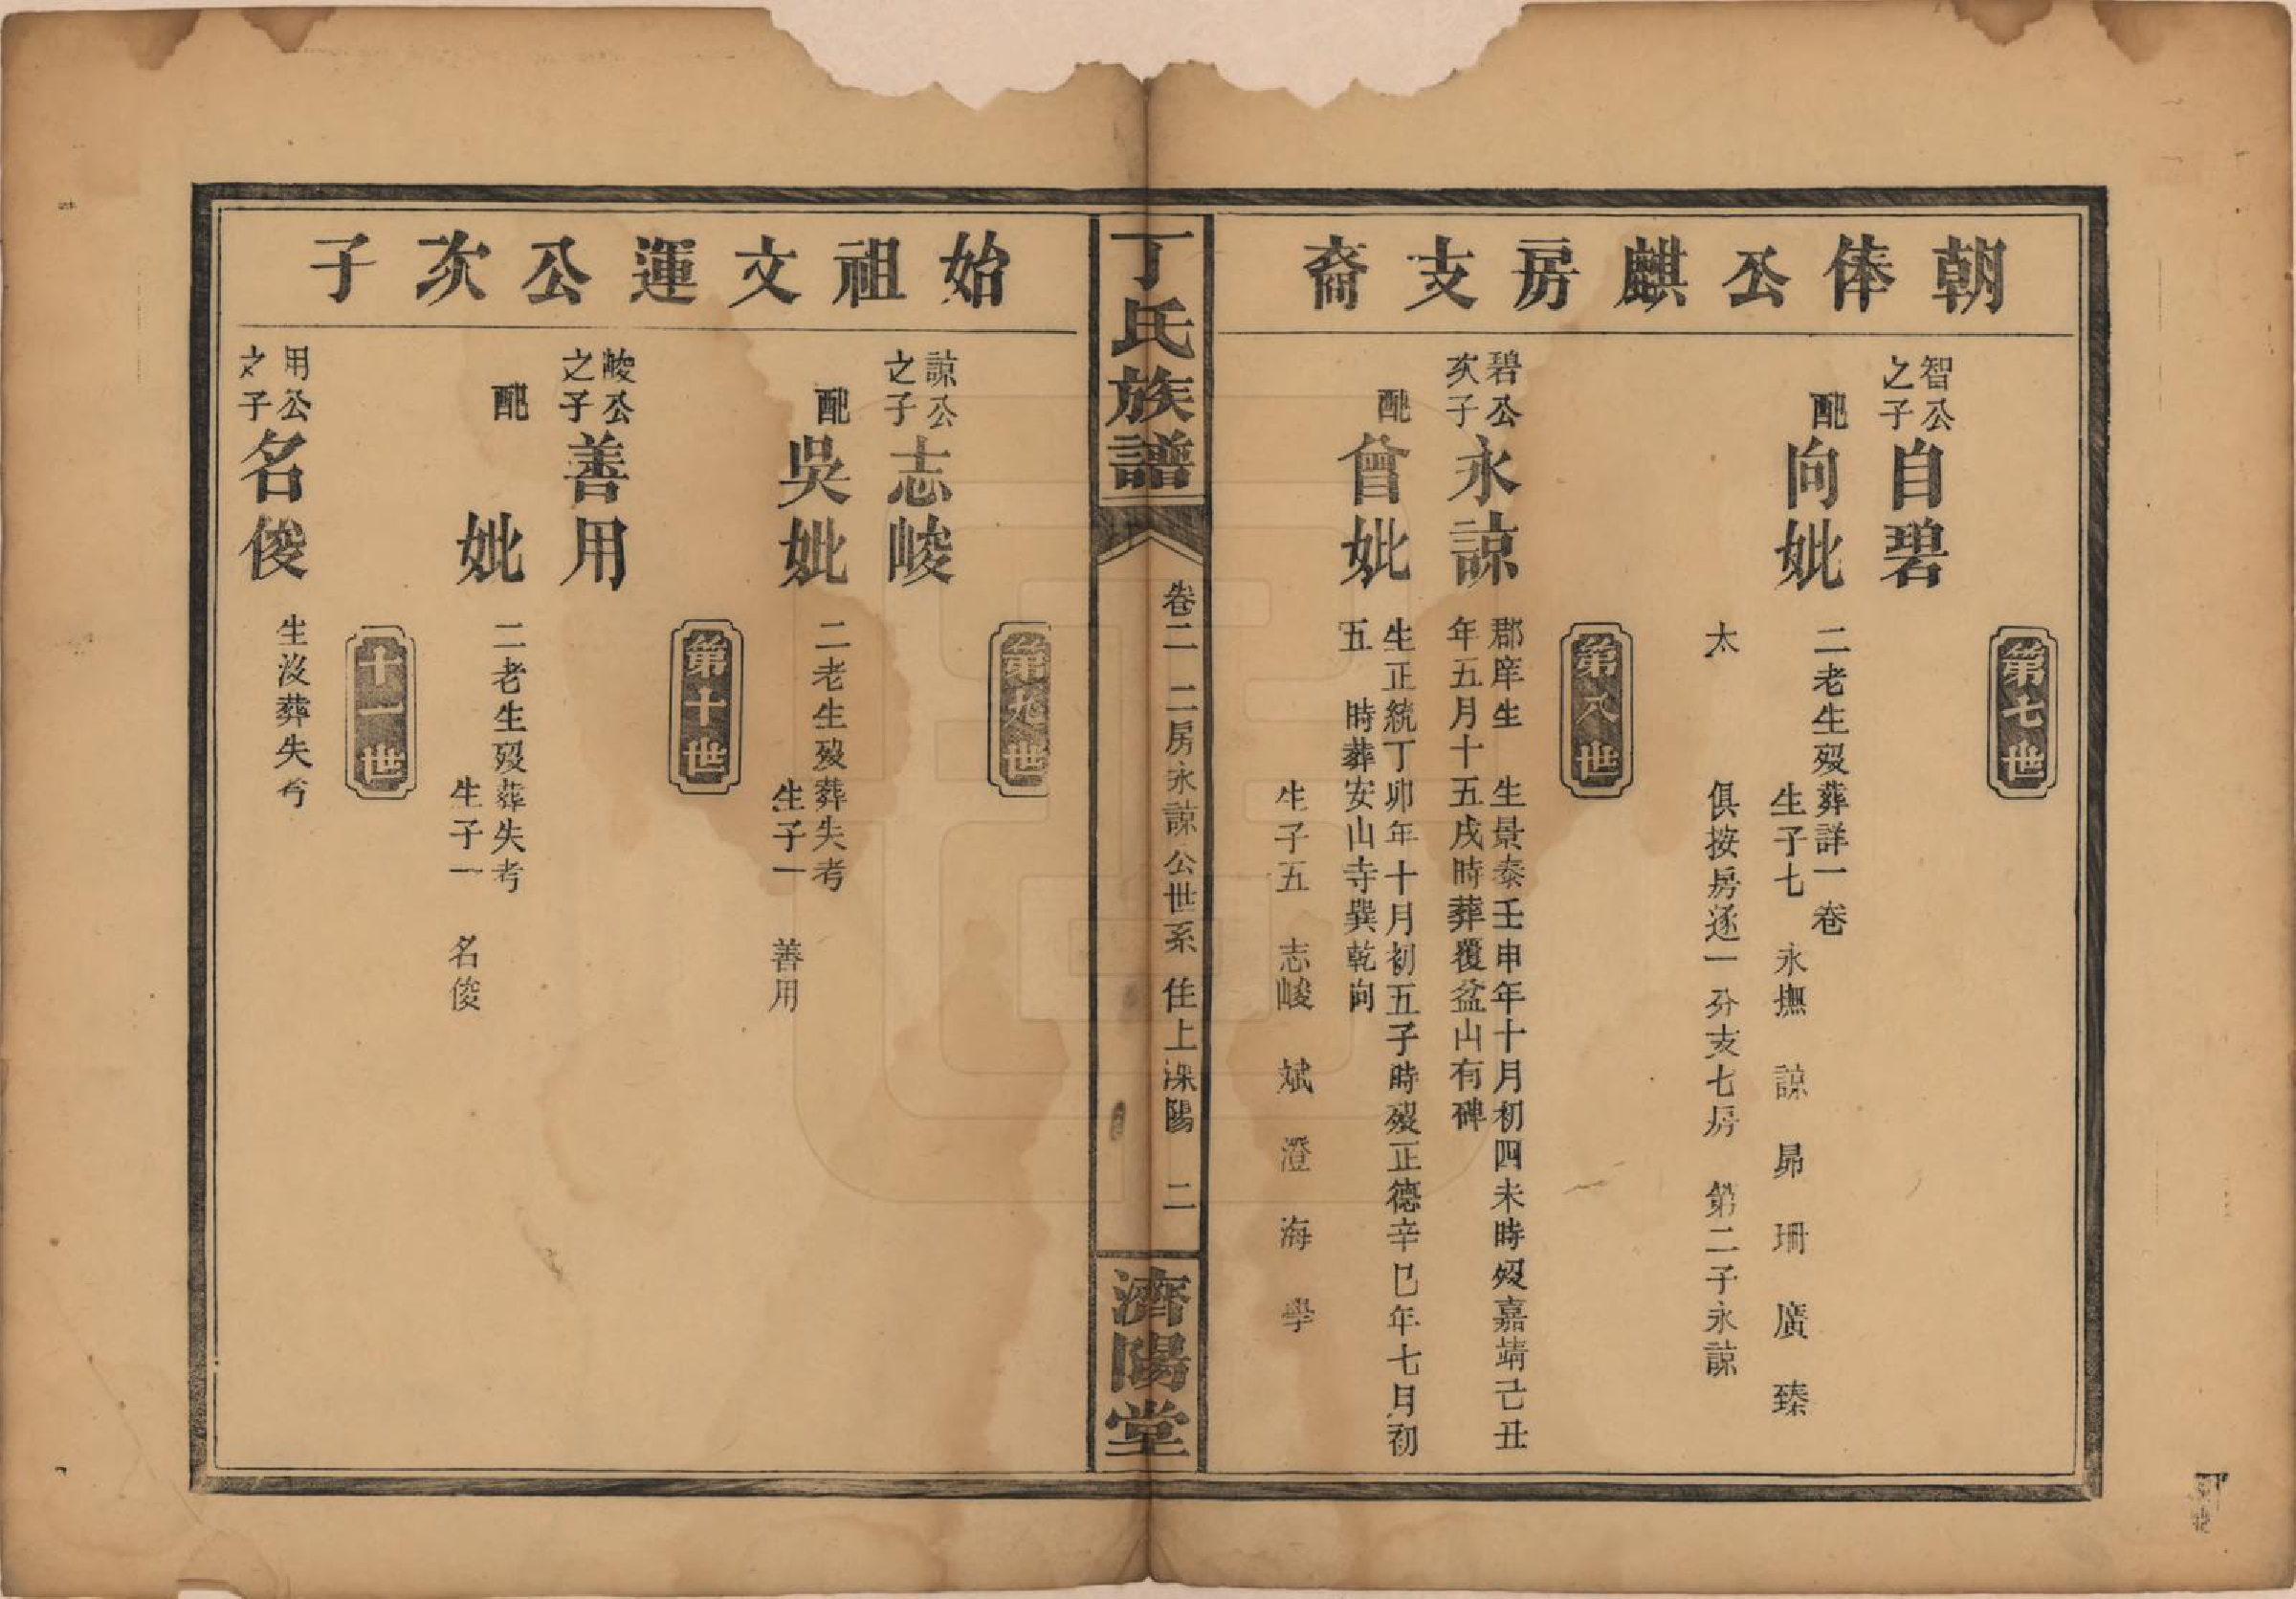 朝俸公麒房支裔
第七世
智公
之子
自碧
配
向妣
二老生歿葬詳一卷
生子七 永撫 諒 昴 珊 廣 臻
太 俱按房逐一分支七房 第二子永諒
第八世
碧公
次子
永諒
郡庠生 生景泰壬申年十月初四未時歿嘉靖己丑
年五月十五戌時葬覆盆山有碑
配
曾妣
生正統丁卯年十月初五子時歿正德辛巳年七月初
五 時葬安山寺巽乾向
生子五 志峻 斌 澄 海 學
丁氏族譜
卷二 二房永諒公世系 住上溁陽 二
濟陽堂
始祖文運公次子
第九世
諒公
之子
志峻
配
吳妣
二老生歿葬失考
生子一 善用
第十世
峻公
之子
善用
配
妣
二老生歿葬失考
生子一 名俊
十一世
用公
之子
名俊
生沒葬失考